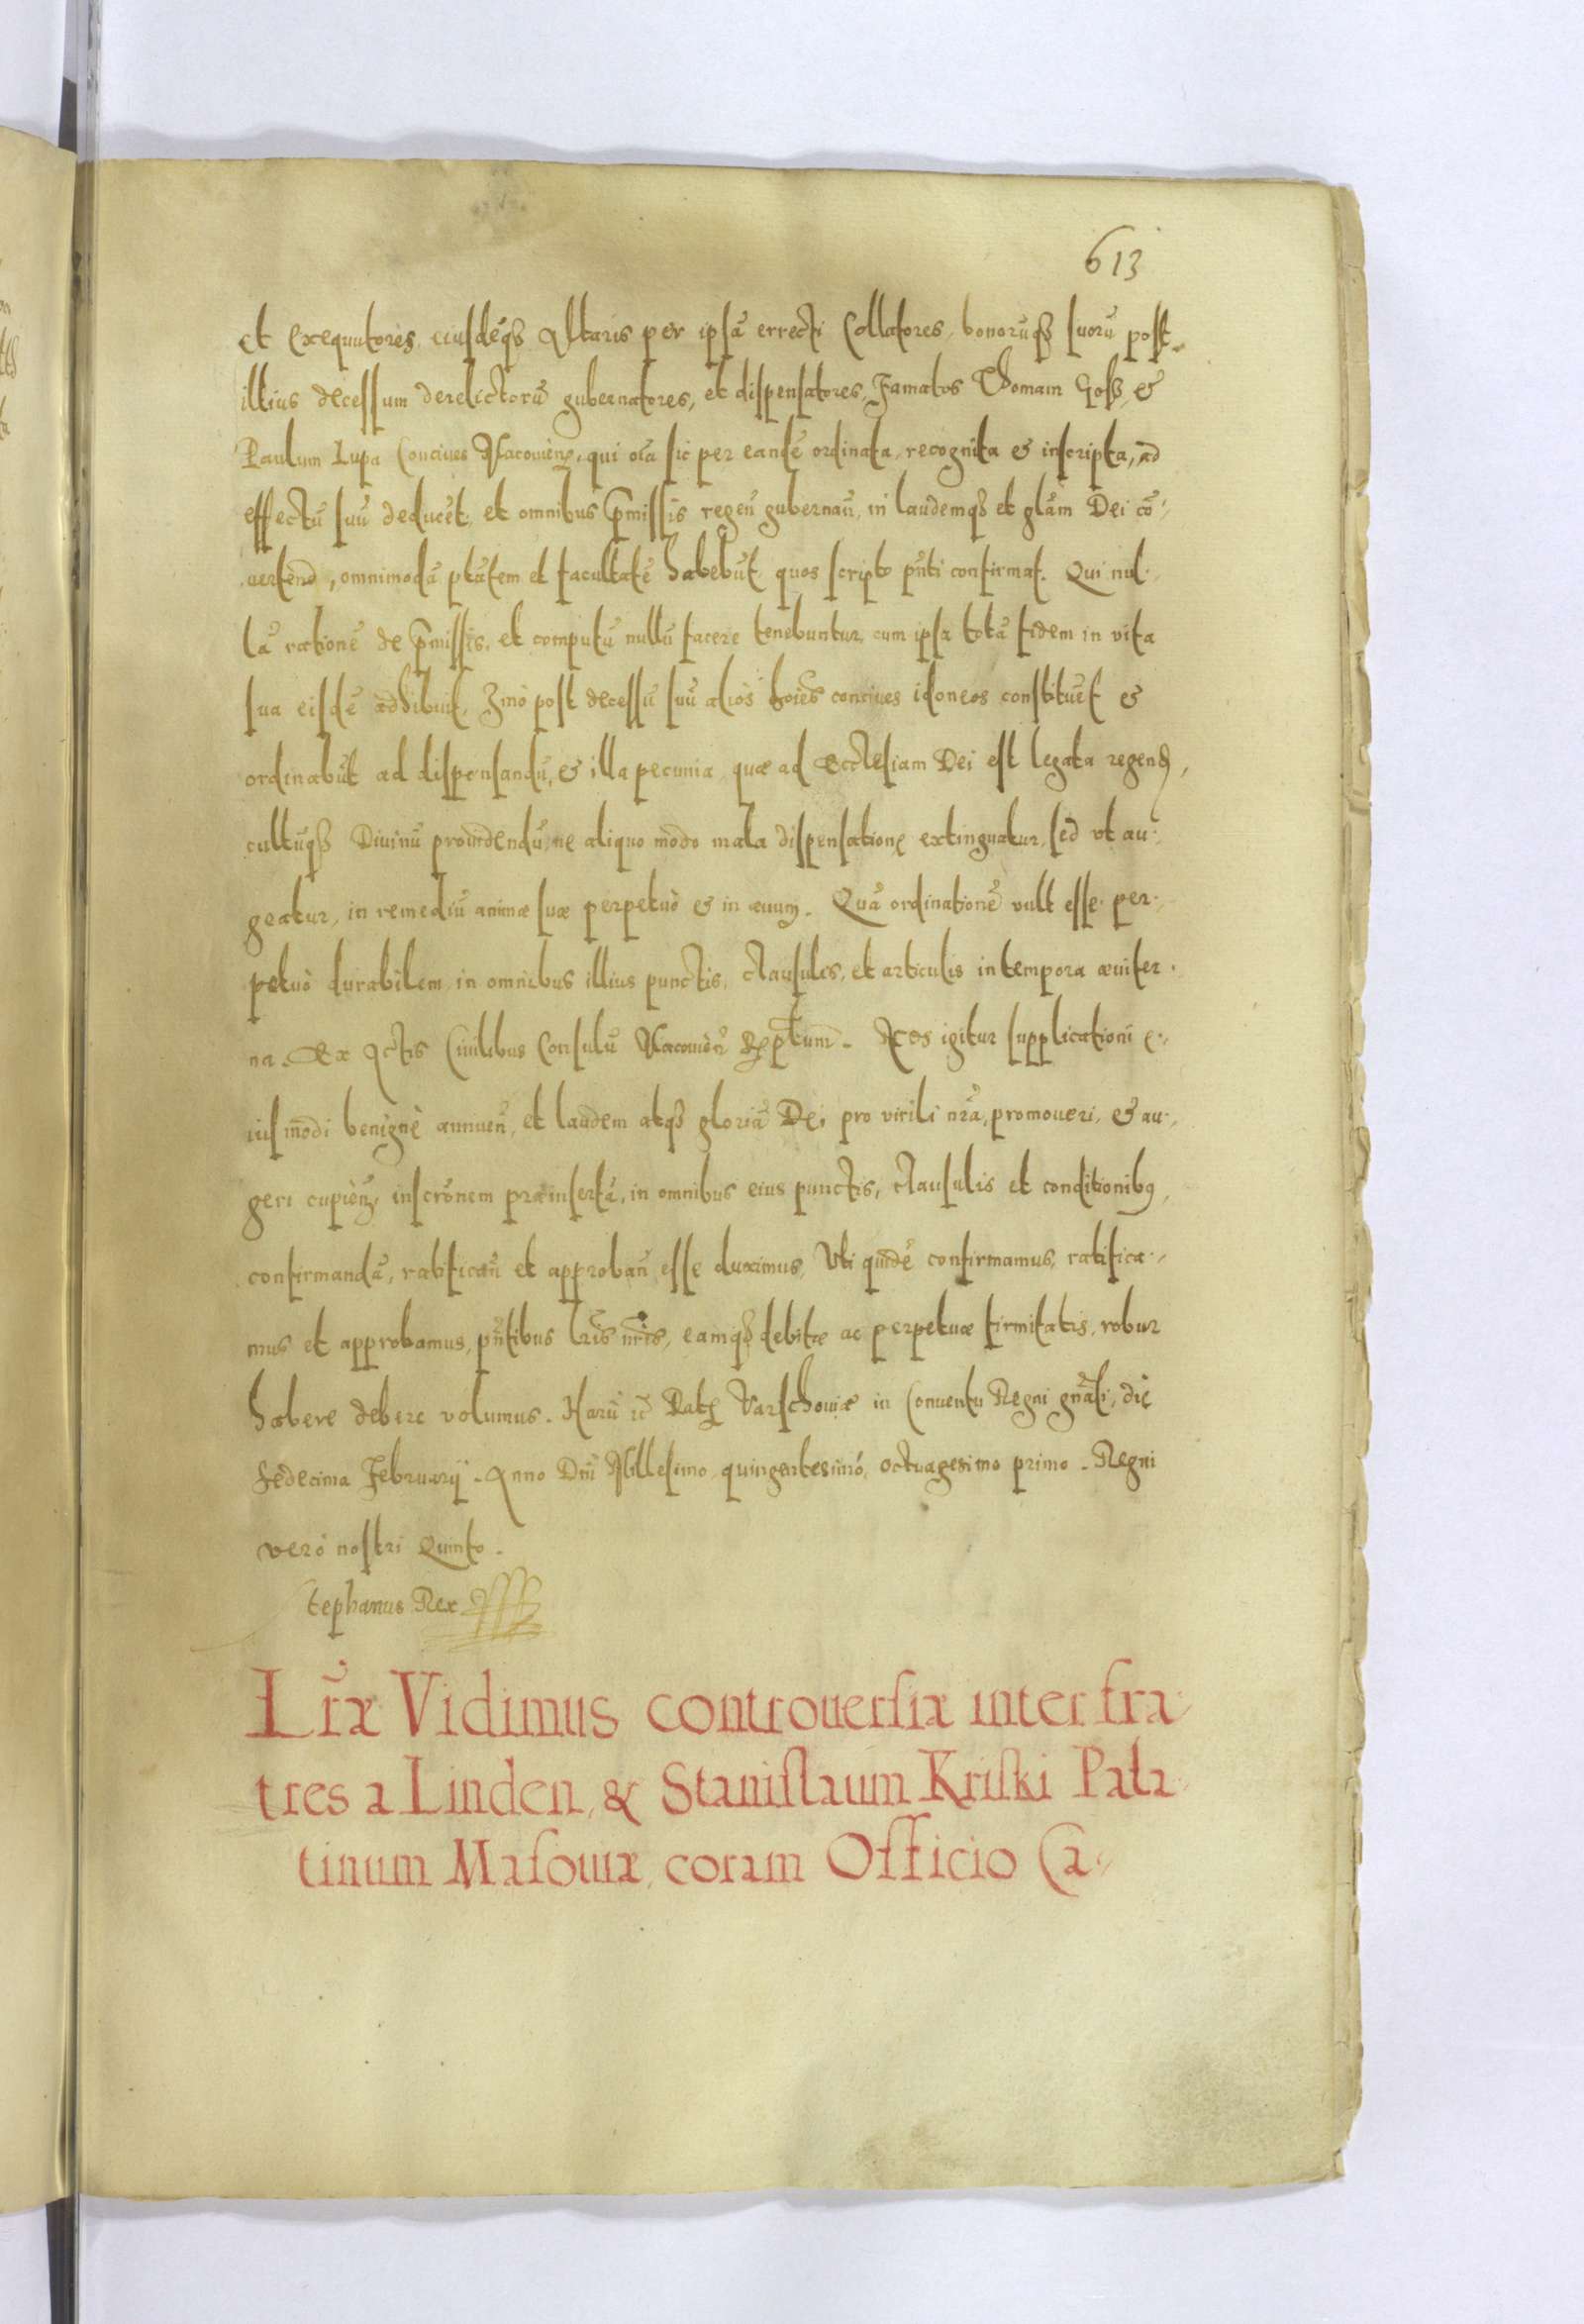 613
et Exequutores, eiusdeqȝ Altaris per ipsā errecti Collatores, bonorūqȝ suorū post
illius decessum derelictorū gubernatores, et dispensatores, Famatos Thomam &
Paulum Lupa Conciues qui oīa sic per eandē ordinata, recognita & inscripta, ad
effectū suū deducēt, et omnibus p̄missis regeñ gubernañ, in laudemqȝ et glām Dei cō-
uertend, omnimodā ptātem et facultatē habebūt, quos scripto pñti confirmat. Qui nul-
lā rationē de p̄missis, et computū nullū facere tenebuntur, cum ipsa totā fidem in vita
sua eisdē adhibuit, Imò post decessū suū aliòs hoīes conciues idoneos constituēt &
ordinabūt ad dispensandū, & illa pecunia, quæ ad Ecclesiam Dei est legata regend,
cultūqȝ Diuinū prouidendū, ne aliquo modo mala dispensatione extinguatur, sed vt au-
geatur, in remediū animæ suæ perpetuò & in æuum. Quā ordinationē vult esse per-
petuò durabilem, in omnibus illius punctis, clausulis, et articulis in tempora æuiter-
na. Ex Actis Ciuilibus Consulū Nos igitur supplicationi e-
iusmodi benignè annueñ, et laudem atqȝ gloriā Dei pro virili nrā, promoueri, & au-
geri cupieñ, inscrōnem præinsertā, in omnibus eius punctis, clausulis et conditionibȝ,
confirmandā, ratificañ et approbañ esse duximus, Uti quidē confirmamus, ratifica-
mus et approbamus, pñtibus lr̄is nr̄is, eamqȝ debitæ ac perpetuæ firmitatis, robur
habere debere volumus. Harū Dat Varschouiæ in Conuentu Regni gñali, die
sedecima Februarij. Anno Dñi Millesimo, quingentesimò, octuagesimo primo. Regni
verò nostri Quinto.
Stephanus Rex
Lr̄æ Vidimus controuersiæ inter fra-
tres a Linden, & Stanislaum Kriski Pala-
tinum Masouiæ, coram Officio Ca-